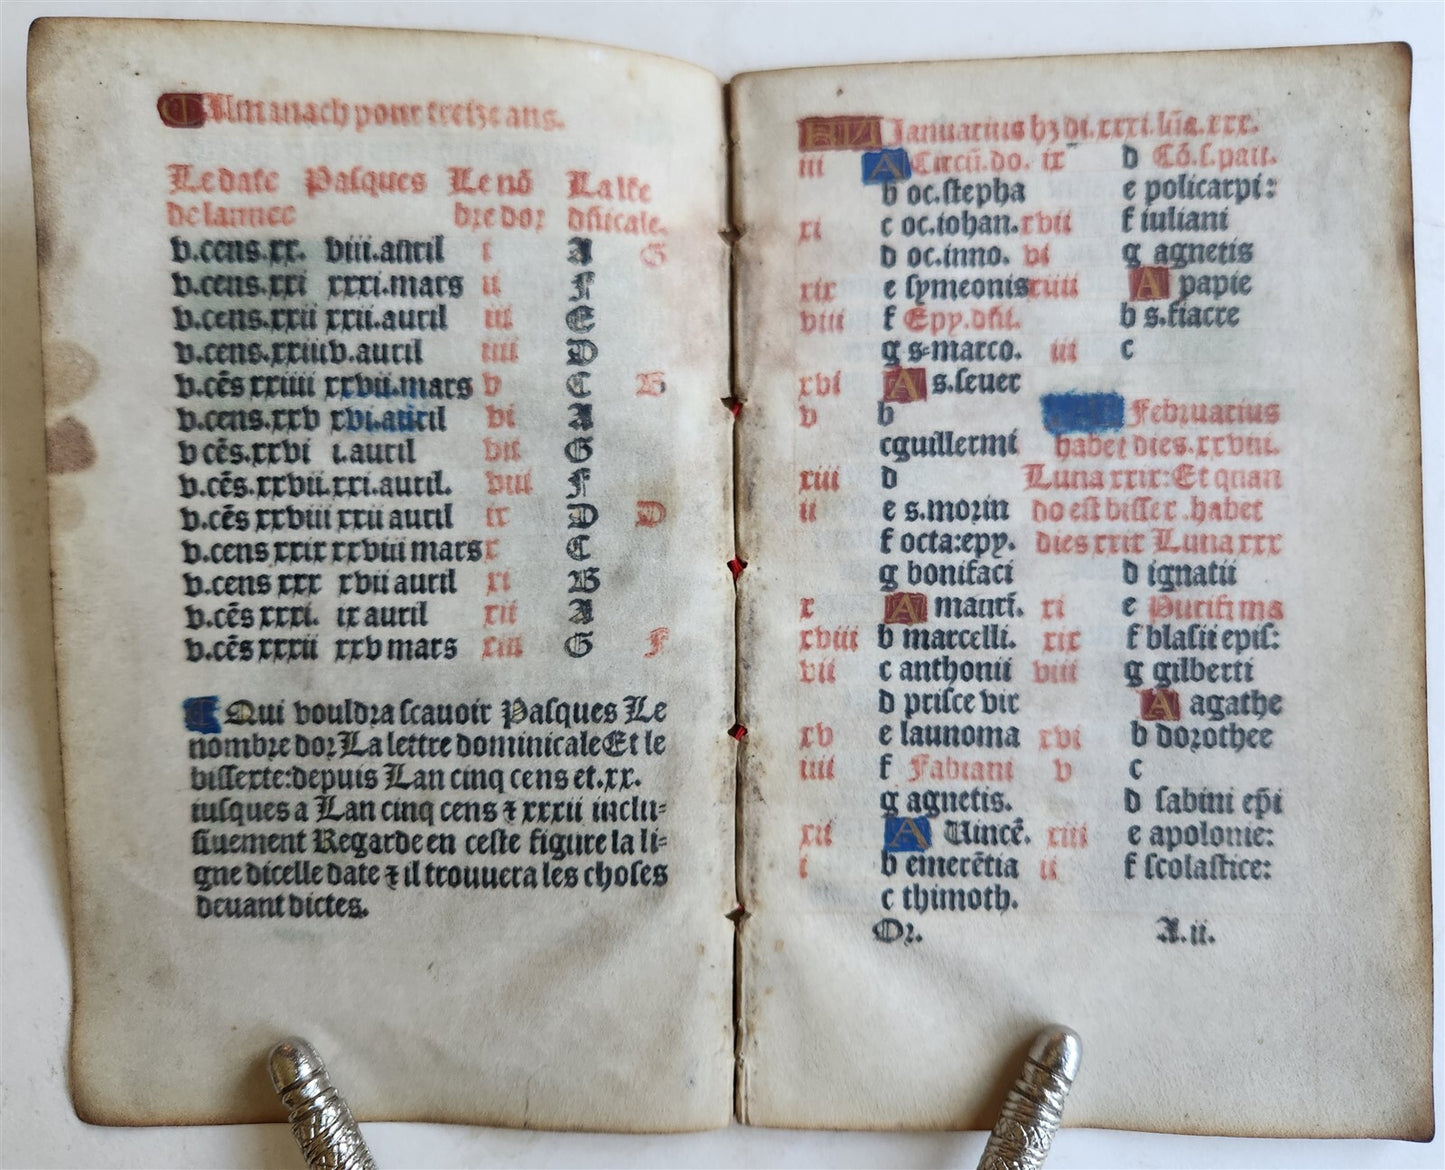 Almanach pour treize ans.
Le date Pasques Le nõ La lr̃e
de lannee bre dor dñicale.
v.cens.xx. viii.auril i A G
v.cens.xxi xxxi.mars ii F
v.cens.xxii xx.auril iii E
v.cens.xxiii v.auril iiii D
v.cẽs xxiiii xxvii.mars v C B
v.cens.xxv xvi.auril vi A
v cẽs.xxvi i.auril vii G
v.cẽs.xxvii.xxi.auril. viii F
v.cẽs xxviii xii auril ix D D
v.cens xxix xxviii mars x C
v.cens xxx xvii auril xi B
v.cẽs xxxi. ix auril xii A
v.cẽs xxxii xxv mars xiii G F
Qui vouldra scauoir Pasques Le
nombre dor La lettre dominicale Et le
bissexte:depuis Lan cinq cens et.xx.
iusques a Lan cinq cens ⁊ xxxii inclu-
siuement Regarde en ceste figure la li-
gne dicelle date ⁊ il trouuera les choses
deuant dictes.
KL Januarius hz di.xxxi.lũa.xxx.
iii A Circũ.do.
b oc.stepha
xi c oc.iohan.
d oc.inno.
xix e symeonis
viii f Epy.dñi.
g s.marco.
xvi A s.seuer
v b
c guillermi
xiii d
ii e s.morin
f octa:epy.
g bonifaci
x A mauri.
xviii b marcelli.
vii c anthonii
d prisce vir
xv e launoma
iiii f Fabiani
g agnetis.
xii A Uincẽ.
i b emerẽtia
c thimoth.
Or.
ix d Cõ.s.paul.
e policarpi:
xvii f iuliani
vi g agnetis
xiiii A papie
b s.fiacre
iii c
KL Februarius
habet dies.xxviii.
Luna xxix:Et quan
do est bissex.habet
dies xxix Luna xxx
d ignatii
xi e Purifi ma
xix f blasii epis:
viii g gilberti
A agathe
xvi b dorothee
v c
d sabini ep̃i
xiii e apolonie:
ii f scolastice:
A.ii.